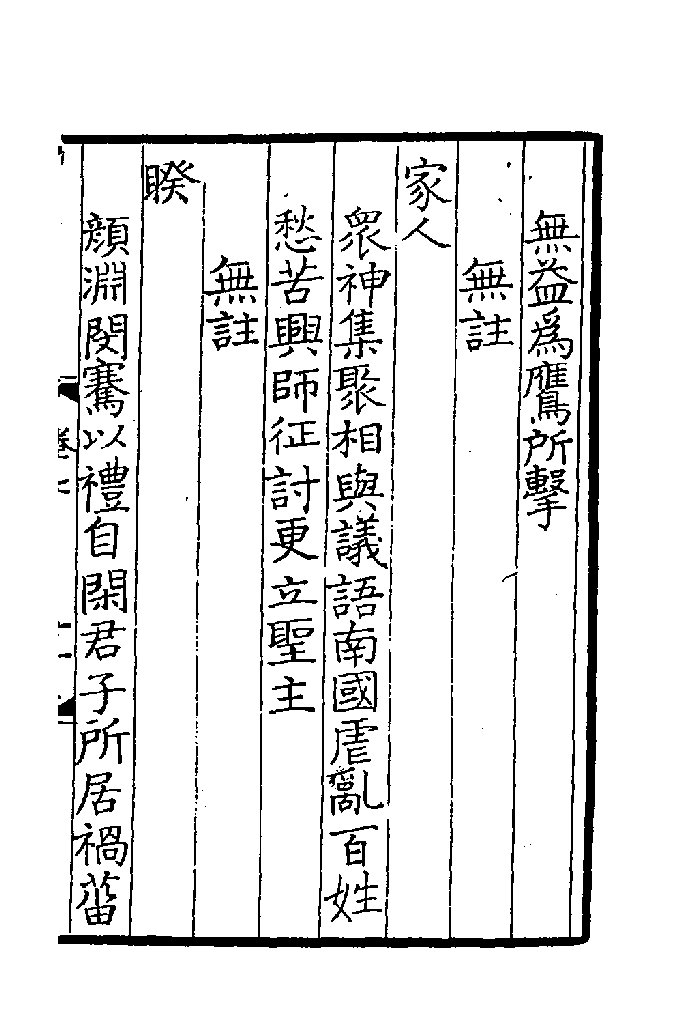 無益爲鷹所擊
無註
家人
衆神集聚相與議語南國虐亂百姓
愁苦興師征討更立聖主
無註
睽
顔淵閔騫以禮自閑君子所居禍菑